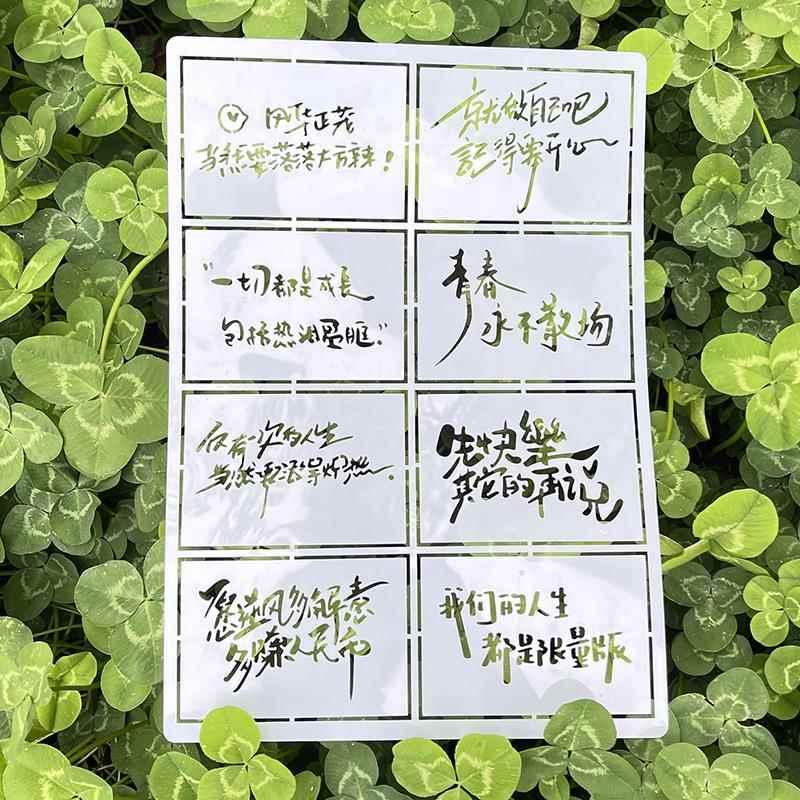 风华正茂
当然要落落大方辣！
就做自己吧
記得要开心
“一切都是成長
包括热泪盈眶.”
青春
永不散场
仅有一次的人生
当然要活得炽热.
先快樂
其它的再说
愿逆风多解意
多赚人民币
我们的人生
都是限量版